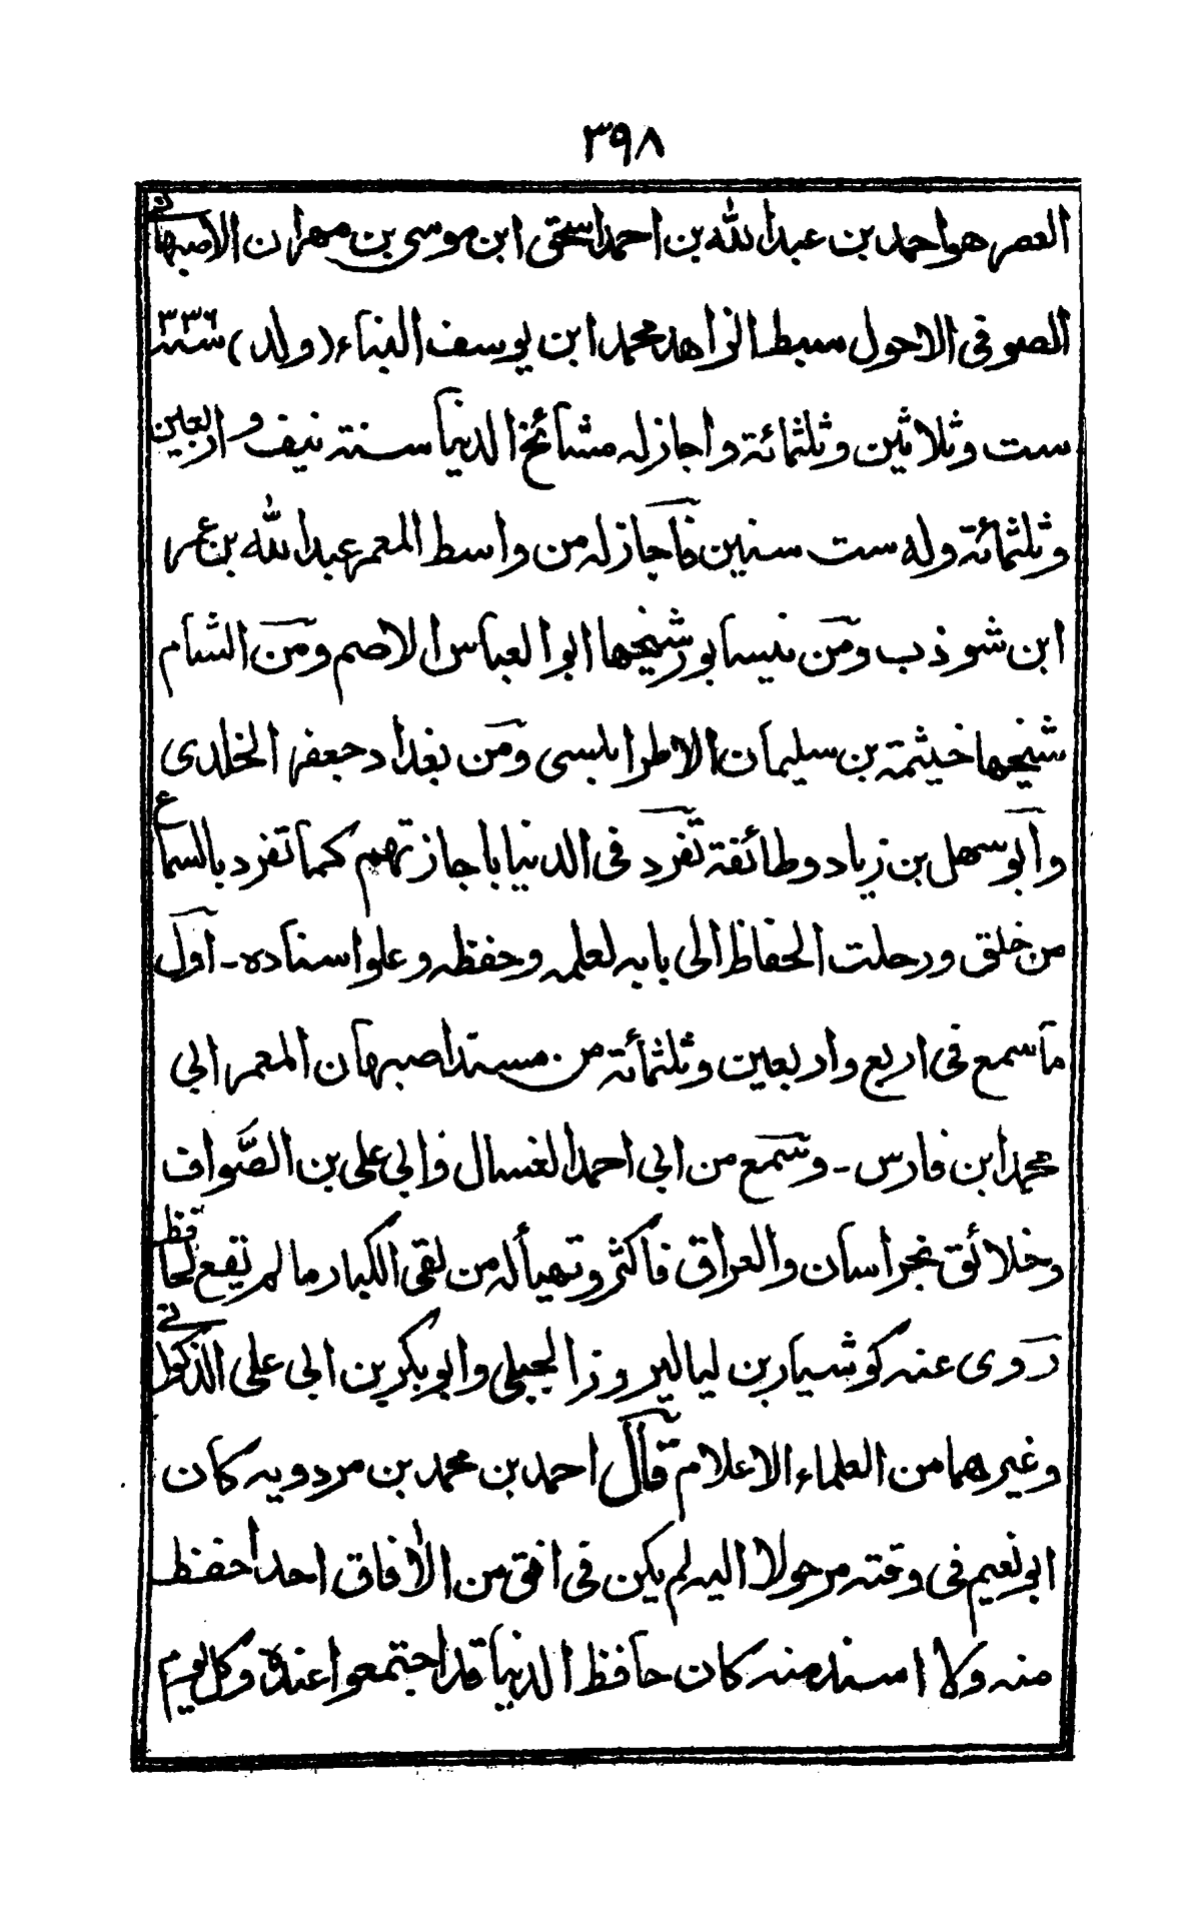 ٣٩٨
العصر هو احمد بن عبد الله بن احمد اسحق ابن موسى بن مهران الاصبهانى
الصوفى الاحول سبط الزاهد محمد ابن يوسف البناء (ولد) سنة ٣٣٦
ست وثلاثين وثلثمائة واجاز له مشائخ الدنيا سنة نيف و اربعين
وثلثمائة وله ست سنين فاجاز له من واسط المعمر عبد الله بن عمر
ابن شوذب ومن نيسابور شيخها ابو العباس الاصم ومن الشام
شيخها خيثمة بن سليمان الاطرابلسى ومن بغداد جعفر الخلدى
وابو سهل بن زياد وطائفة تفرد فى الدنيا باجازتهم كما تفرد بالسماع
من خلق ورحلت الحفاظ الى بابه لعلمه وحفظه وعلو اسناده - اول
ما سمع فى اربع واربعين وثلثمائة من مسند اصبهان المعمر ابي
محمد ابن فارس - وسمع من ابي احمد الغسال وابي على بن الصَّواف
وخلائق بخراسان والعراق فاكثر وتهيأ له من لقى الكبار ما لم يقع لحافظ
روى عنه كوشيار بن لياليروز الجبلى وابو بكر بن ابى على الذكوانى
وغيرهما من العلماء الاعلام قال احمد بن محمد بن مردويه كان
ابو نعيم فى وقته مرحولا اليه لم يكن فى افق من الأفاق احد احفظ
منه ولا اسند منه كان حافظ الدنيا قد اجتمعوا عنده وكل يوم